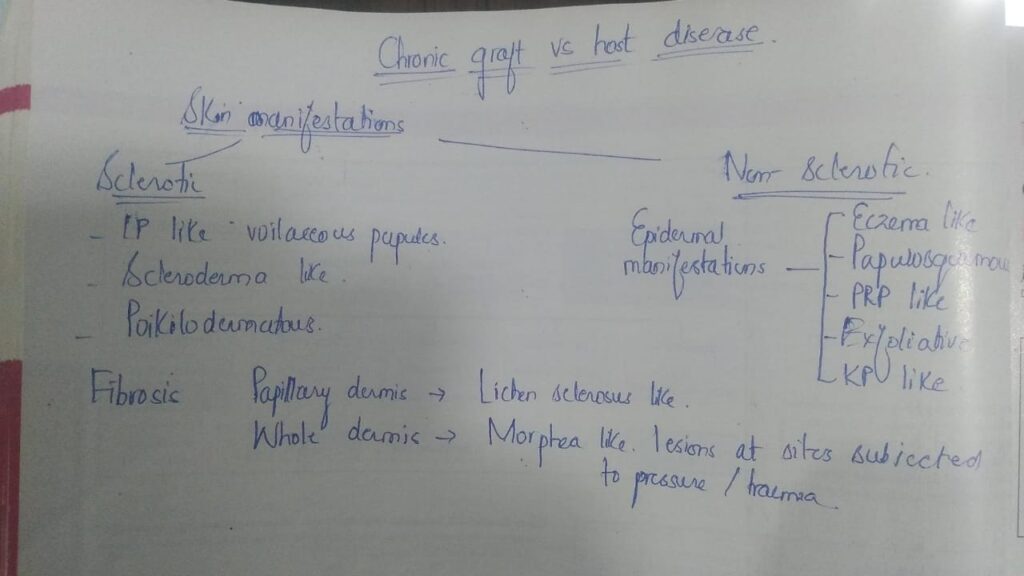 Chronic graft vs host disease.
Skin manifestations
Sclerotic
- LP like voilaceous papules.
- Scleroderma like.
- Poikilodermatous.
Non sclerotic.
Epidermal
manifestations
- Eczema like
- Papulosquamous
- PRP like
- Exfoliative
- KP like
Fibrosis Papillary dermis → Lichen sclerosus like.
Whole dermis → Morphea like. lesions at sites subjected
to pressure / trauma.